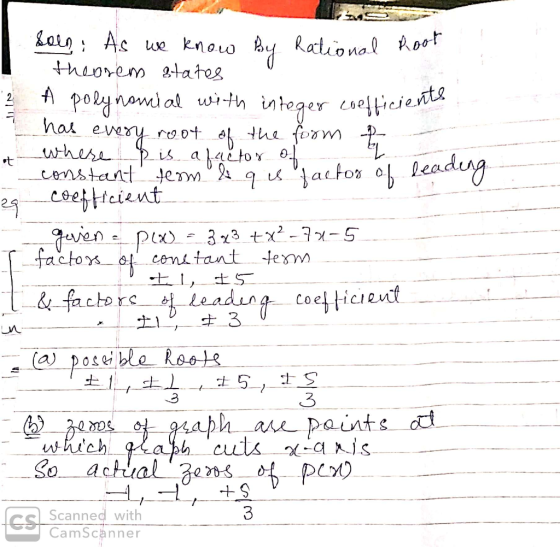 Soln : As we know By Rational Root
theorem states
A polynomial with integer coefficients
has every root of the form p/q
where p is a factor of
constant term & q is factor of leading
coefficient
given = p(x) = 3x³ + x² - 7x - 5
factors of constant term
±1, ±5
& factors of leading coefficient
±1, ±3
(a) possible Roots
±1, ±1/3, ±5, ±5/3
(b) zeros of graph are points at
which graph cuts x-axis
So actual zeros of p(x)
-1, -1, +5/3
CS Scanned with
CamScanner